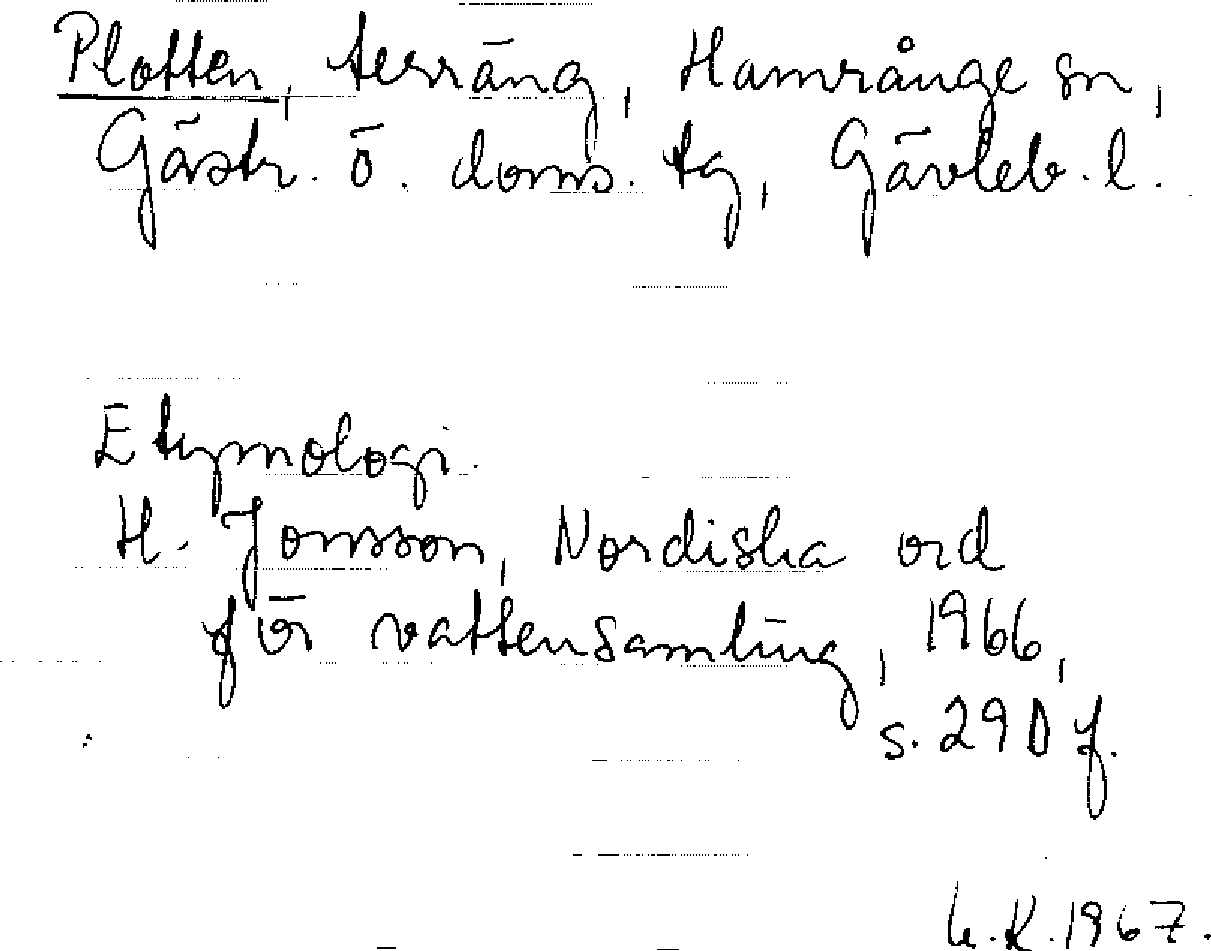 Plotten, terräng, Hamrånge sn,
Gästr. ö. doms. tg, Gävleb. l.
Etymologi.
H. Jonsson, Nordiska ord
för vattensamling, 1966,
s. 290 f.
K. 1967.